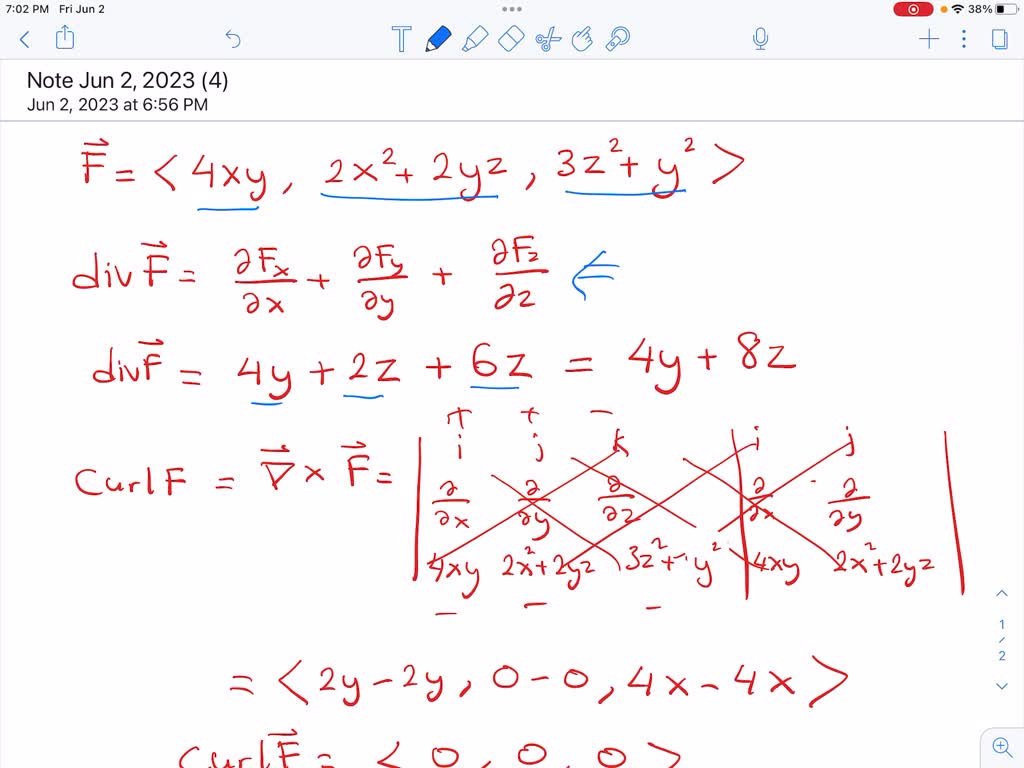 7:02 PM Fri Jun 2 38%
Note Jun 2, 2023 (4)
Jun 2, 2023 at 6:56 PM
F⃗ = < 4xy, 2x² + 2yz, 3z² + y² >
div F⃗ = ∂Fx/∂x + ∂Fy/∂y + ∂Fz/∂z ⇐
div F⃗ = 4y + 2z + 6z = 4y + 8z
+ + −
i j k i j
Curl F = ∇⃗ × F⃗ = | ∂/∂x ∂/∂y ∂/∂z | ∂/∂x ∂/∂y |
4xy 2x² + 2yz 3z² + y² 4xy 2x² + 2yz
− − −
= < 2y − 2y, 0 − 0, 4x − 4x >
Curl F⃗ = < 0, 0, 0 >
1
/
2